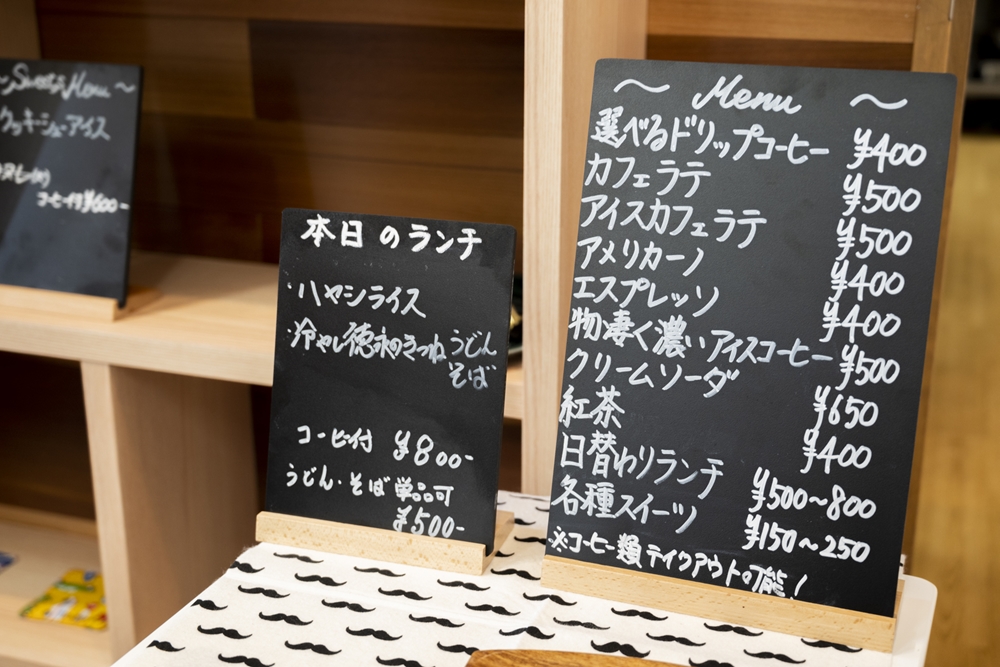 〜Sweets Menu〜
クッキーシューアイス
コーヒー付¥600-
本日のランチ
・ハヤシライス
・冷やし徳永のきつねうどん
そば
コーヒー付 ¥800-
うどん・そば単品可
¥500-
〜 Menu 〜
選べるドリップコーヒー ¥400
カフェラテ ¥500
アイスカフェラテ ¥500
アメリカーノ ¥400
エスプレッソ ¥400
物凄く濃いアイスコーヒー ¥500
クリームソーダ ¥650
紅茶 ¥400
日替わりランチ ¥500〜800
各種スイーツ ¥150〜250
※コーヒー類テイクアウト可能！